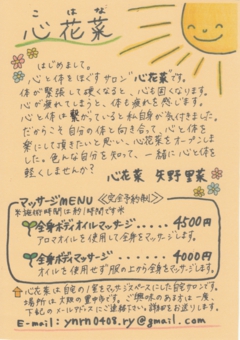 こはな
心花菜
はじめまして。
心と体をほぐすサロン"心花菜"です。
体が緊張して硬くなると、心も固くなります。
心が疲れてしまうと、体も疲れを感じます。
心と体は繋がっていると私自身が気付きました。
だからこそ自分の体と向き合って、心と体を
楽にして頂きたいと思い、心花菜をオープンしま
した。色んな自分を知って、一緒に心と体を
軽くしませんか?
心花菜 矢野里菜
マッサージMENU 《完全予約制》
※施術時間は約1時間です※
全身ボディオイルマッサージ.....4500円
アロマオイルを使用して全身をマッサージします。
全身ボディマッサージ........4000円
オイルを使用せず服の上から全身をマッサージします。
心花菜は自宅の1室をマッサージスペースにした自宅サロンです。
場所は大阪の豊中市です。ご興味のある方は一度、
下記のメールアドレスにご連絡下さい。詳細をお送りします。
E-mail: ynrn0408.ry@gmail.com